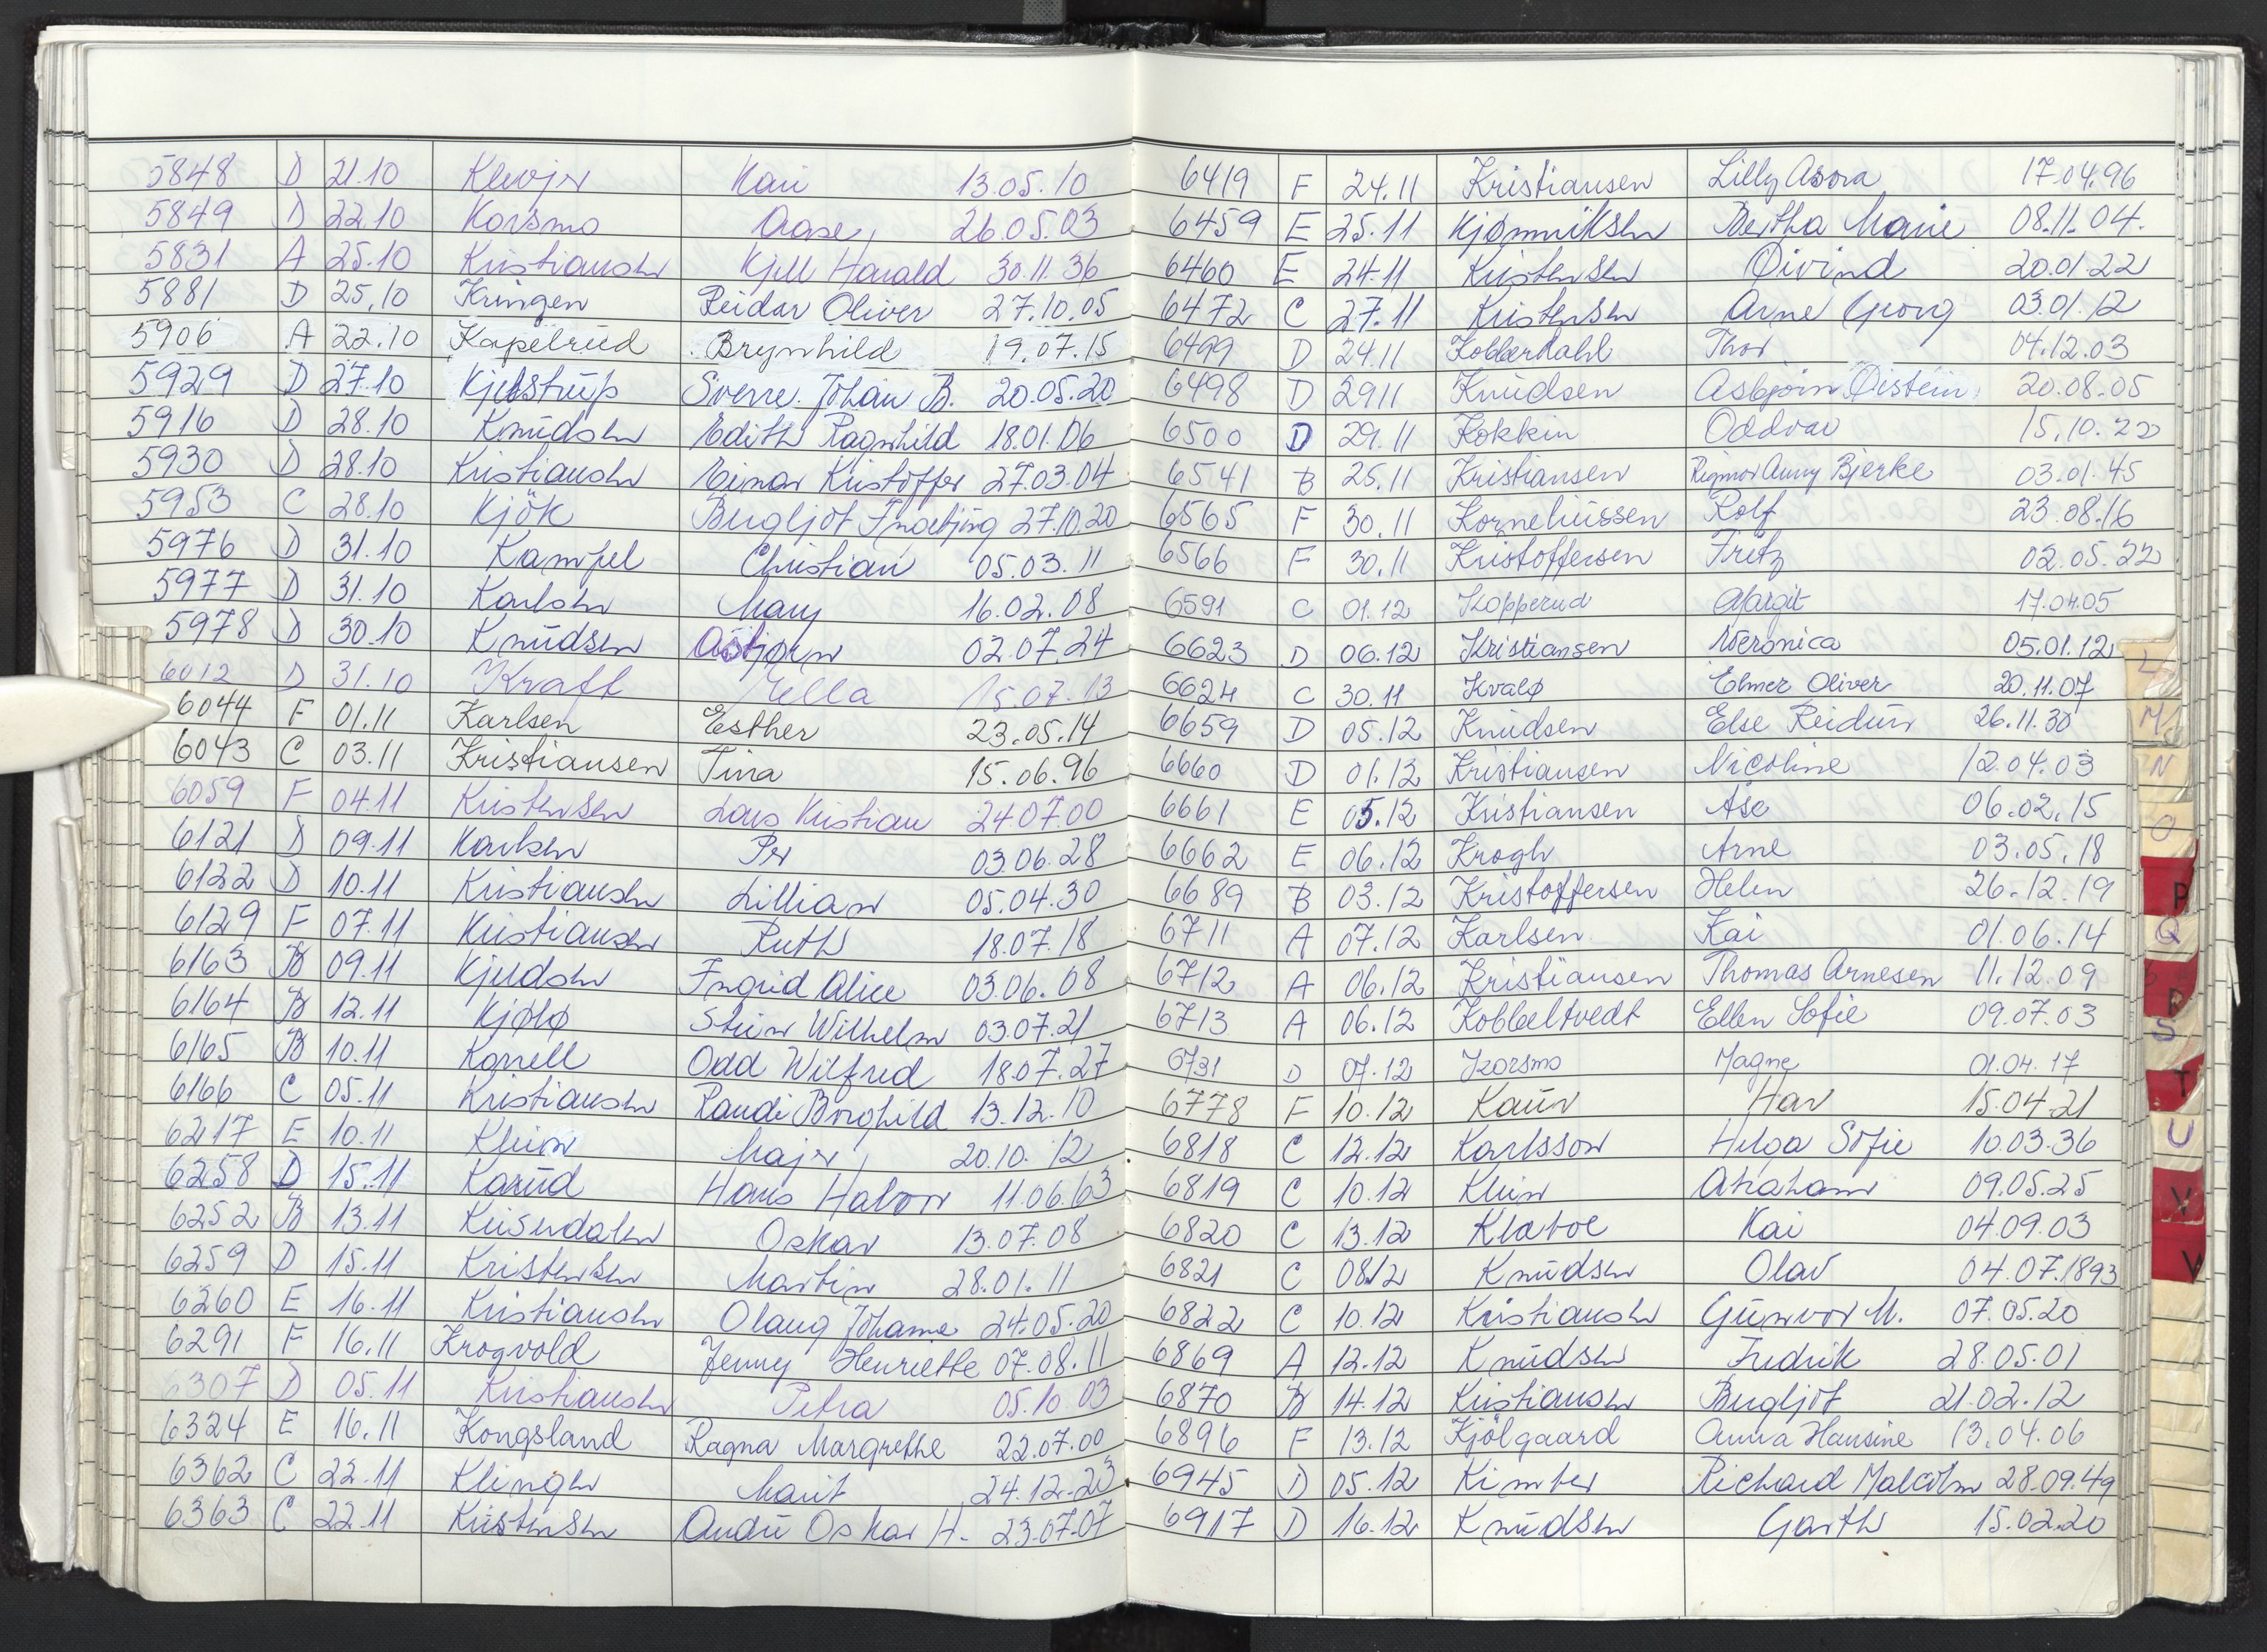 5848 D 21.10 Klevjer Kari 13.05.10
5849 D 22.10 Korsmo Aase 26.05.03
5831 A 25.10 Kristiansen Kjell Harald 30.11.36
5881 D 25.10 Kringen Reidar Oliver 27.10.05
5906 A 22.10 Kapelrud Brynhild 19.07.15
5929 D 27.10 Kjelstrup Sverre Johan B. 20.05.20
5916 D 28.10 Knudsen Edith Ragnhild 18.01.06
5930 D 28.10 Kristiansen Einar Kristoffer 27.03.04
5953 C 28.10 Kjök Bergljot 27.10.20
5976 D 31.10 Kampel Christian 05.03.11
5977 D 31.10 Karlsen Mary 16.02.08
5978 D 30.10 Knudsen Asbjørn 02.07.24
6012 D 31.10 Kraft Jella 15.07.13
6044 F 01.11 Karlsen Esther 23.05.14
6043 C 03.11 Kristiansen Tina 15.06.96
6059 F 04.11 Kristensen Lars Kristian 24.07.00
6121 D 09.11 Karlsen Per 03.06.28
6122 D 10.11 Kristiansen Lillian 05.04.30
6129 F 07.11 Kristiansen Ruth 18.07.18
6163 B 09.11 Kjeldsen Ingrid Alice 03.06.08
6164 B 12.11 Kjølø Stein Wilhelm 03.07.21
6165 B 10.11 Konell Odd Wilfred 18.07.27
6166 C 05.11 Kristiansen Randi Borghild 13.12.10
6217 E 10.11 Klein Majer 20.10.12
6258 D 15.11 Karud Hans Halvor 11.06.63
6252 B 13.11 Keiserdalen Oskar 13.07.08
6259 D 15.11 Kristensen Martin 28.01.11
6260 E 16.11 Kristiansen Olaug Johanne 24.05.20
6291 F 16.11 Krogvold Jenny Henriette 07.08.11
6307 D 05.11 Kristiansen Petra 05.10.03
6324 E 16.11 Kongsland Ragna Margrethe 22.07.00
6362 C 22.11 Klingen Marit 24.12.23
6363 C 22.11 Kristensen Oskar H. 23.07.07
6419 F 24.11 Kristiansen Lilly Asora 17.04.96
6459 E 25.11 Kjømniksen Bertha Marie 08.11.04.
6460 E 24.11 Kristensen Øivind 20.01.22
6472 C 27.11 Kristensen Arne Georg 03.01.12
6499 D 24.11 Kobberdahl Thor 04.12.03
6498 D 29.11 Knudsen Asbjørn Øistein 20.08.05
6500 D 29.11 Kokkin Oddvar 15.10.22
6541 B 25.11 Kristiansen Rigmor Anny Bjerke 03.01.45
6565 F 30.11 Korneliussen Rolf 23.08.16
6566 F 30.11 Kristoffersen Fretz 02.05.22
6591 C 01.12 Kopperud Margit 17.04.05
6623 D 06.12 Kristiansen Veronica 05.01.12
6624 C 30.11 Kvalø Elmer Oliver 20.11.07
6659 D 05.12 Knudsen Else Reidun 26.11.30
6660 D 01.12 Kristiansen Nicoline 12.04.03
6661 E 05.12 Kristiansen Åse 06.02.15
6662 E 06.12 Krogh Arne 03.05.18
6689 B 03.12 Kristoffersen Helen 26.12.19
6711 A 07.12 Karlsen Kai 01.06.14
6712 A 06.12 Kristiansen Thomas Arnesen 11.12.09
6713 A 06.12 Kobbeltvedt Ellen Sofie 09.07.03
6731 D 07.12 Korsmo Magne 01.04.17
6778 F 10.12 Kaur Har 15.04.21
6818 C 12.12 Karlsson Helga Sofie 10.03.36
6819 C 10.12 Klein Abraham 09.05.25
6820 C 13.12 Klaboe Kai 04.09.03
6821 C 08.12 Knudsen Olav 04.07.1893
6822 C 10.12 Kristiansen Gunvor M. 07.05.20
6869 A 12.12 Knudsen Fredrik 28.05.01
6870 B 14.12 Kristiansen Bergljot 21.02.12
6896 F 13.12 Kjölgaard Anna Hansine 13.04.06
6945 D 05.12 Kimber Richard Malcolm 28.09.49
6917 D 16.12 Knudsen Garth 15.02.20
L
M
N
O
P
Q
R
S
T
U
V